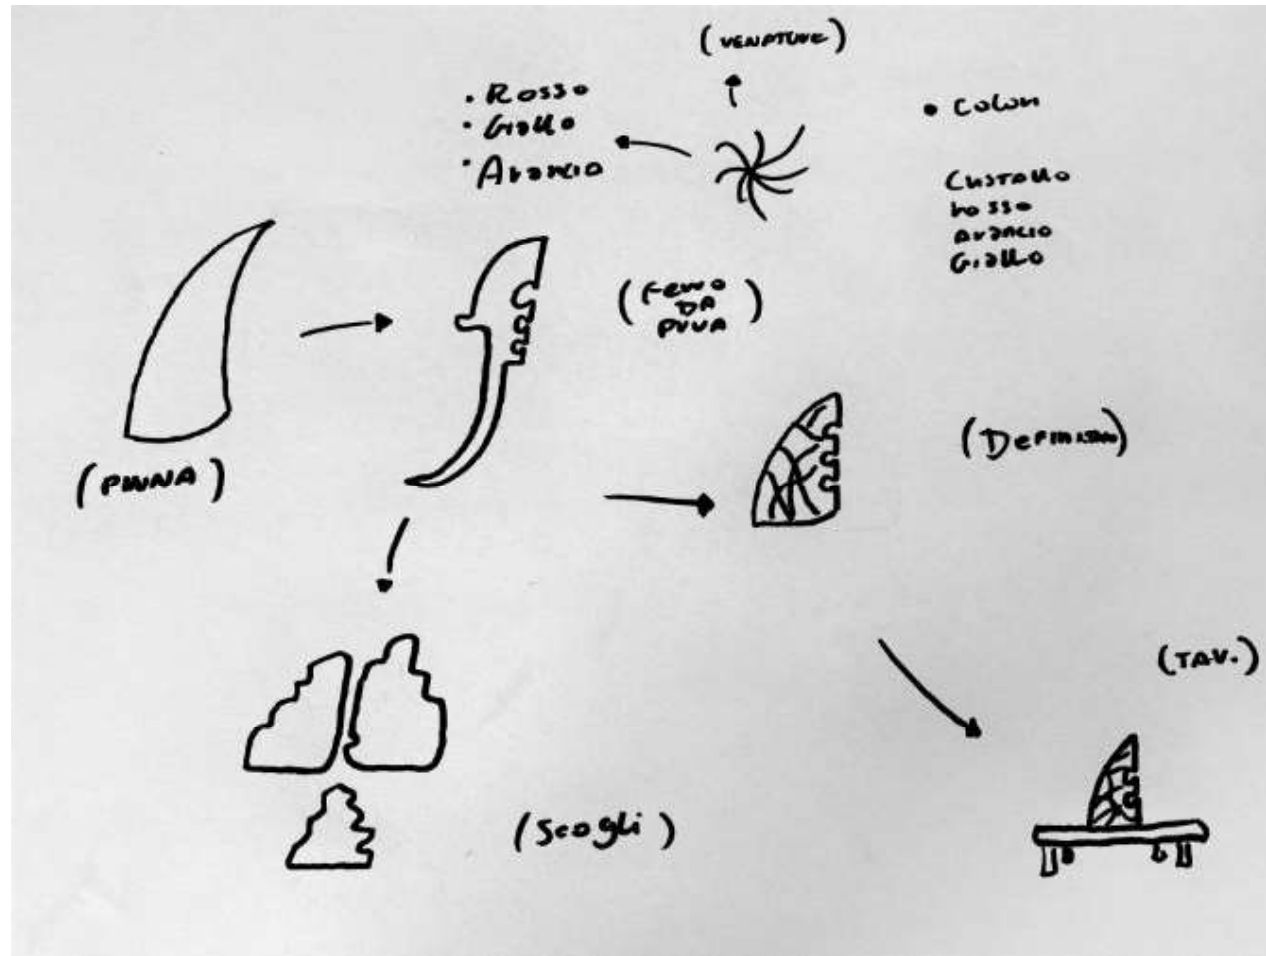 (VENATURE)
• Rosso
• Giallo
• Arancio
• Colori
Cristallo
Rosso
Arancio
Giallo
(Ferro
DA
PRUA)
(PINNA)
(Definitivo)
(TAV.)
(Scogli)